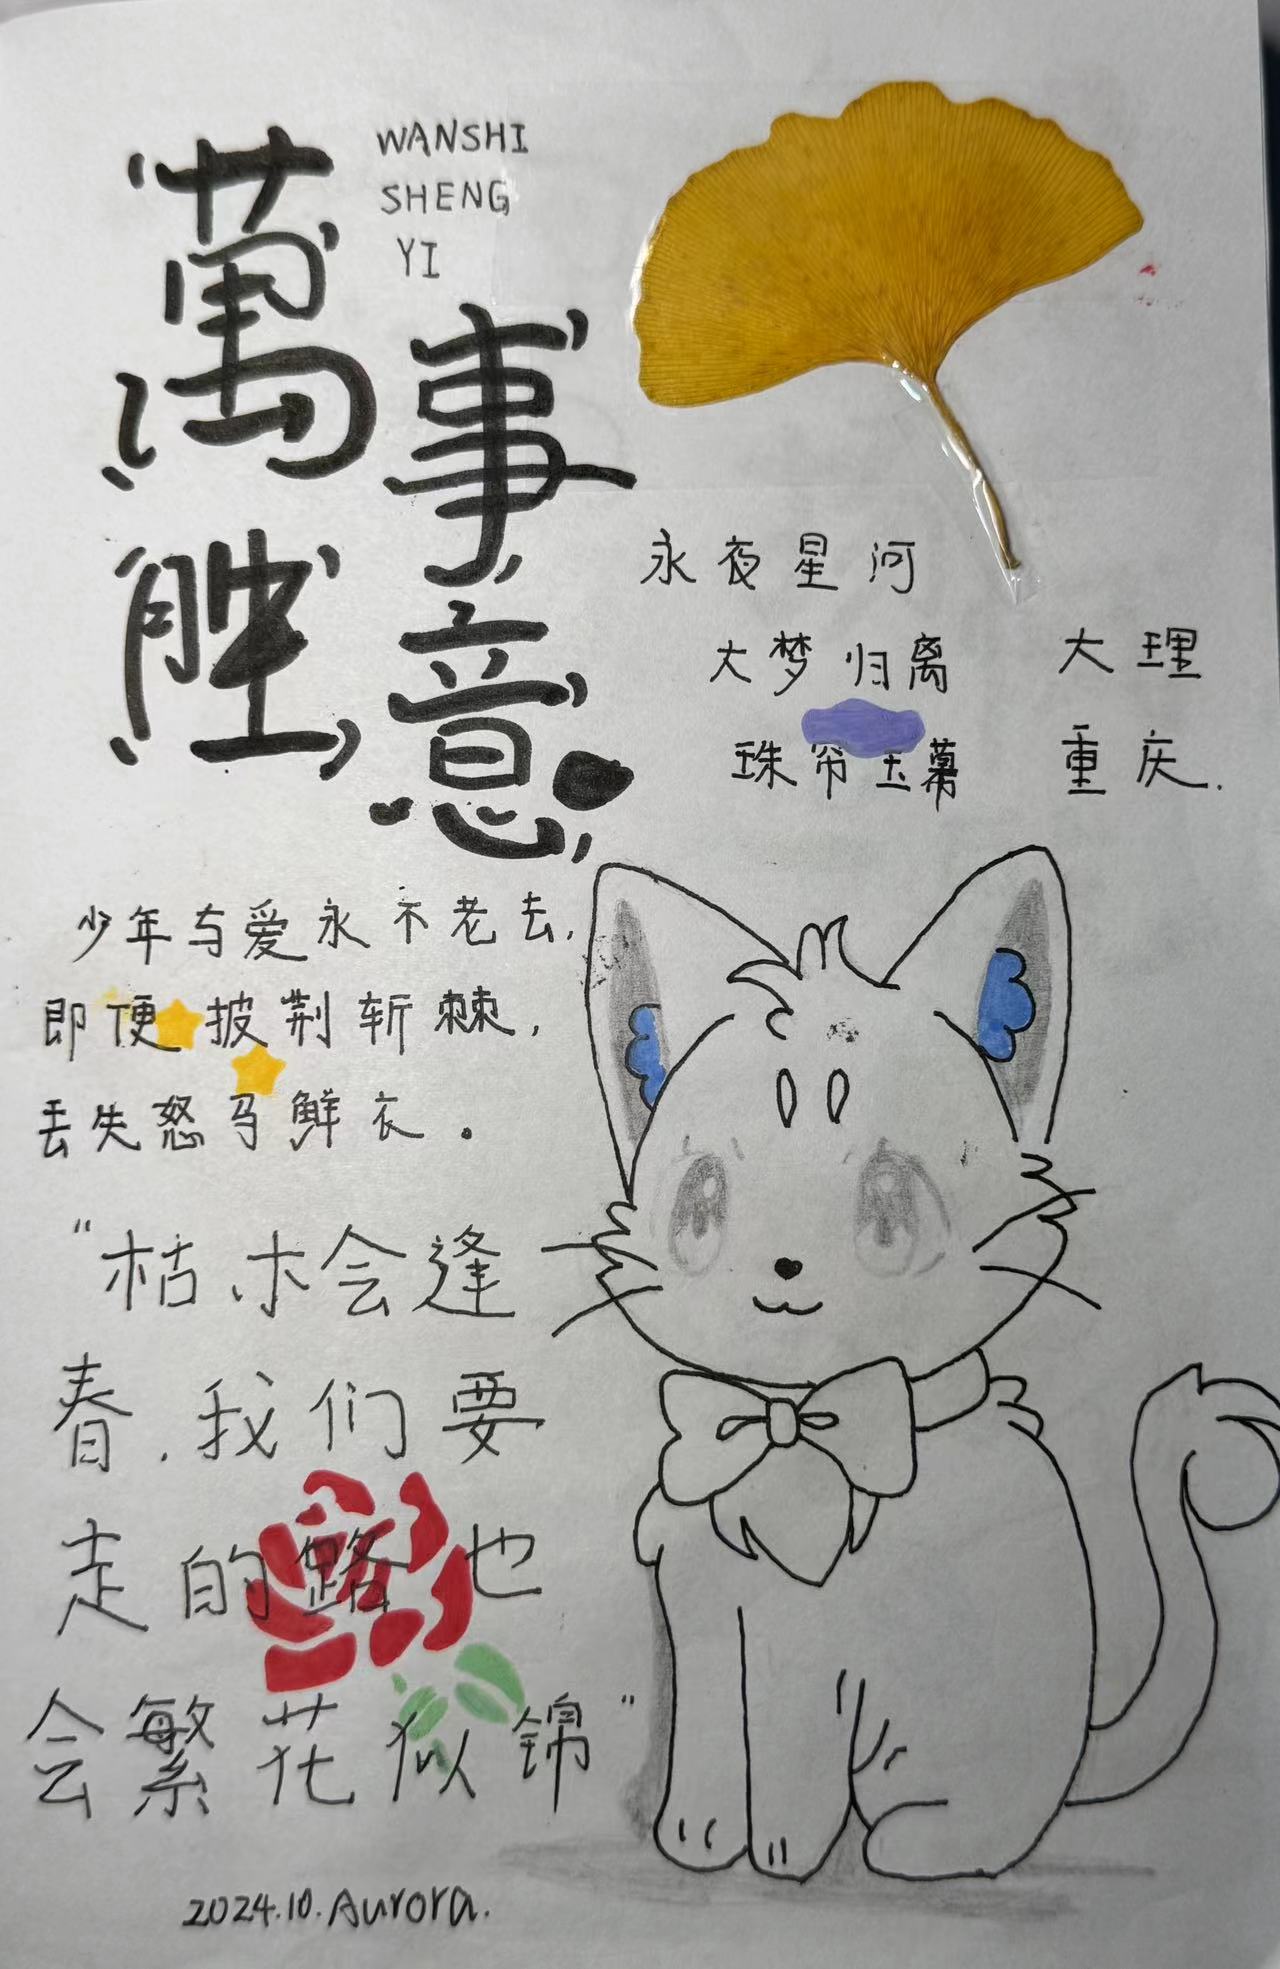 萬事
胜意
WANSHI
SHENG
YI
永夜星河
大梦归离
珠帘玉幕
大理
重庆.
少年与爱永不老去,
即便披荆斩棘,
丢失怒马鲜衣。
“枯木会逢
春.我们要
走的路也
会繁花似锦”
2024.10.Aurora.